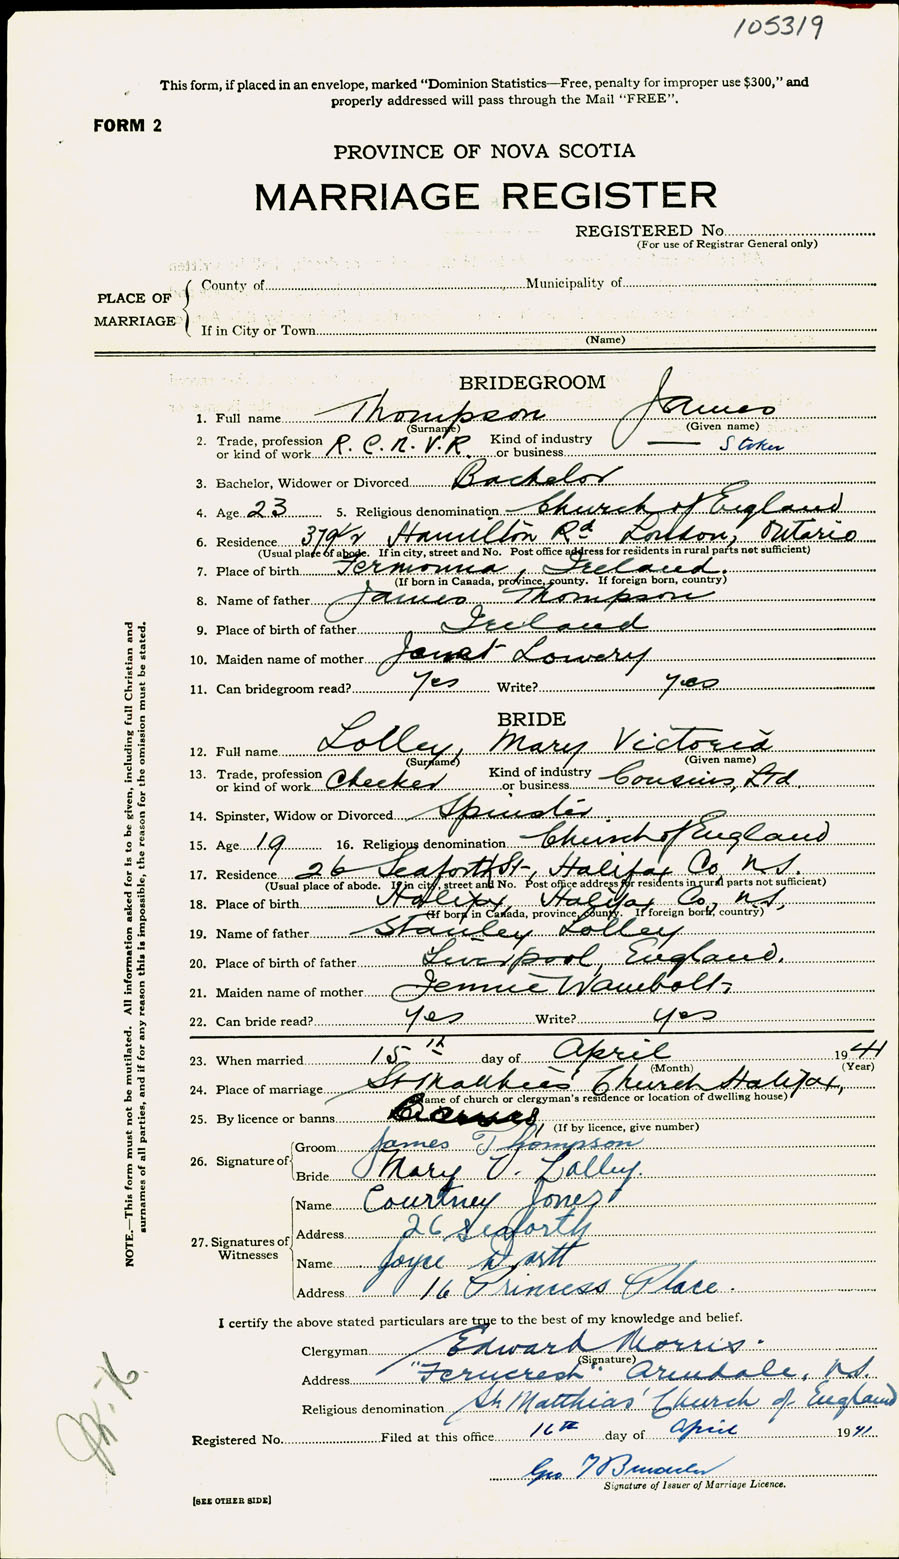 105319
This form, if placed in an envelope, marked “Dominion Statistics—Free, penalty for improper use $300,” and
properly addressed will pass through the Mail “FREE”.
FORM 2
PROVINCE OF NOVA SCOTIA
MARRIAGE REGISTER
REGISTERED No.
(For use of Registrar General only)
PLACE OF MARRIAGE
County of Municipality of
If in City or Town
(Name)
BRIDEGROOM
1. Full name Thompson James
(Surname) (Given name)
2. Trade, profession or kind of work R.C.N.V.R. Kind of industry or business — Stoker
3. Bachelor, Widower or Divorced Bachelor
4. Age 23 5. Religious denomination Church of England
6. Residence 379½ Hamilton Rd London, Ontario
(Usual place of abode. If in city, street and No. Post office address for residents in rural parts not sufficient)
7. Place of birth Ireland.
(If born in Canada, province, county. If foreign born, country)
8. Name of father James Thompson
9. Place of birth of father Ireland
10. Maiden name of mother Janet Lowery
11. Can bridegroom read? Yes Write? Yes
BRIDE
12. Full name Lolley, Mary Victoria
(Surname) (Given name)
13. Trade, profession or kind of work Checker Kind of industry or business Cousins, Ltd.
14. Spinster, Widow or Divorced Spinster
15. Age 19 16. Religious denomination Church of England
17. Residence 26 Seaforth St., Halifax Co, N.S.
(Usual place of abode. If in city, street and No. Post office address for residents in rural parts not sufficient)
18. Place of birth Halifax, Halifax Co, N.S.,
(If born in Canada, province, county. If foreign born, country)
19. Name of father Stanley Lolley
20. Place of birth of father Liverpool, England.
21. Maiden name of mother Jennie Wambolt
22. Can bride read? Yes Write? Yes
23. When married 15th day of April 1941
(Month) (Year)
24. Place of marriage St Matthias' Church Halifax,
(Name of church or clergyman's residence or location of dwelling house)
25. By licence or banns Banns,
(If by licence, give number)
26. Signature of
Groom James Thompson
Bride Mary V. Lolley.
27. Signatures of Witnesses
Name Courtney Jones
Address 26 Seaforth
Name Joyce
Address 16 Princess Place.
I certify the above stated particulars are true to the best of my knowledge and belief.
Clergyman Edward Morris.
(Signature)
Address "Ferncrest" Armdale, N.S.
Religious denomination St Matthias' Church of England
Registered No. Filed at this office 16th day of April 1941
Geo
Signature of Issuer of Marriage Licence.
[SEE OTHER SIDE]
NOTE.—This form must not be mutilated. All information asked for is to be given, including full Christian and
surnames of all parties, and if for any reason this is impossible, the reason for the omission must be stated.